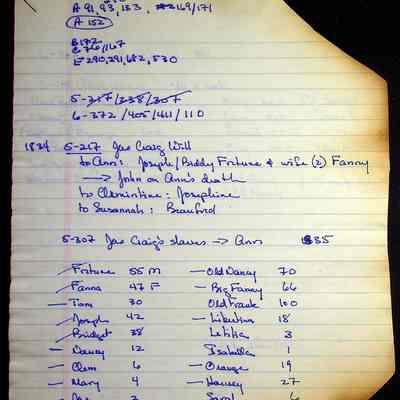 A 91, 93, 153, 169/171
A 152
B 172
C 76/167
E 290,291,682,530
5-217/238/307
6-372/405/411/110
1834 5-217 Jas Craig Will
to Ann: Joseph/Biddy Fortune & wife (?) Fanny
→ John on Ann's death
to Clementine: Josephine
to Susannah: Brauford
5-307 Jas Craig's slaves → Ann 1835
Fortune 55 M — Old Nancy 70
Fanna 47 F — Big Fanny 66
Tom 30 Old Frank 100
Joseph 42 — Likutia 18
Bridget 38 Letitia 3
Nancy 12 Isabella 1
Clem 6 — Orange 19
Mary 4 — Hawsey 27
Sarah 6